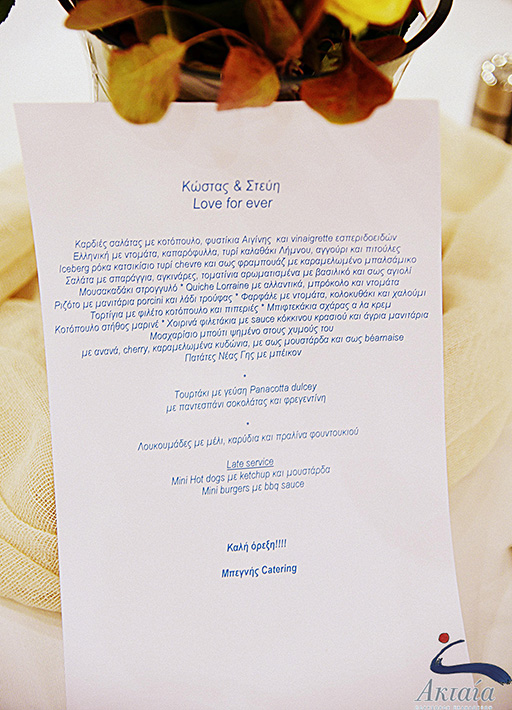 Κώστας & Στεύη
Love for ever
Καρδιές σαλάτας με κοτόπουλο, φυστίκια Αιγίνης και vinaigrette εσπεριδοειδών
Ελληνική με ντομάτα, καπαρόφυλλα, τυρί καλαθάκι Λήμνου, αγγούρι και πιτούλες
Iceberg ρόκα κατσικίσιο τυρί chevre και σως φραμπουάζ με καραμελωμένο μπαλσάμικο
Σαλάτα με σπαράγγια, αγκινάρες, τοματίνια αρωματισμένα με βασιλικό και σως αγιολί
Μουσακαδάκι στρογγυλό * Quiche Lorraine με αλλαντικά, μπρόκολο και ντομάτα
Ριζότο με μανιτάρια porcini και λάδι τρούφας * Φαρφάλε με ντομάτα, κολοκυθάκι και χαλούμι
Τορτίγια με φιλέτο κοτόπουλο και πιπεριές * Μπιφτεκάκια σχάρας α λα κρεμ
Κοτόπουλο στήθος μαρινέ * Χοιρινά φιλετάκια με sauce κόκκινου κρασιού και άγρια μανιτάρια
Μοσχαρίσιο μπούτι ψημένο στους χυμούς του
με ανανά, cherry, καραμελωμένα κυδώνια, με σως μουστάρδα και σως béarnaise
Πατάτες Νέας Γης με μπέικον
*
Τουρτάκι με γεύση Panacotta dulcey
με παντεσπάνι σοκολάτας και φρεγεντίνη
*
Λουκουμάδες με μέλι, καρύδια και πραλίνα φουντουκιού
Late service
Mini Hot dogs με ketchup και μουστάρδα
Mini burgers με bbq sauce
Καλή όρεξη!!!!
Μπεγνής Catering
Ακταία